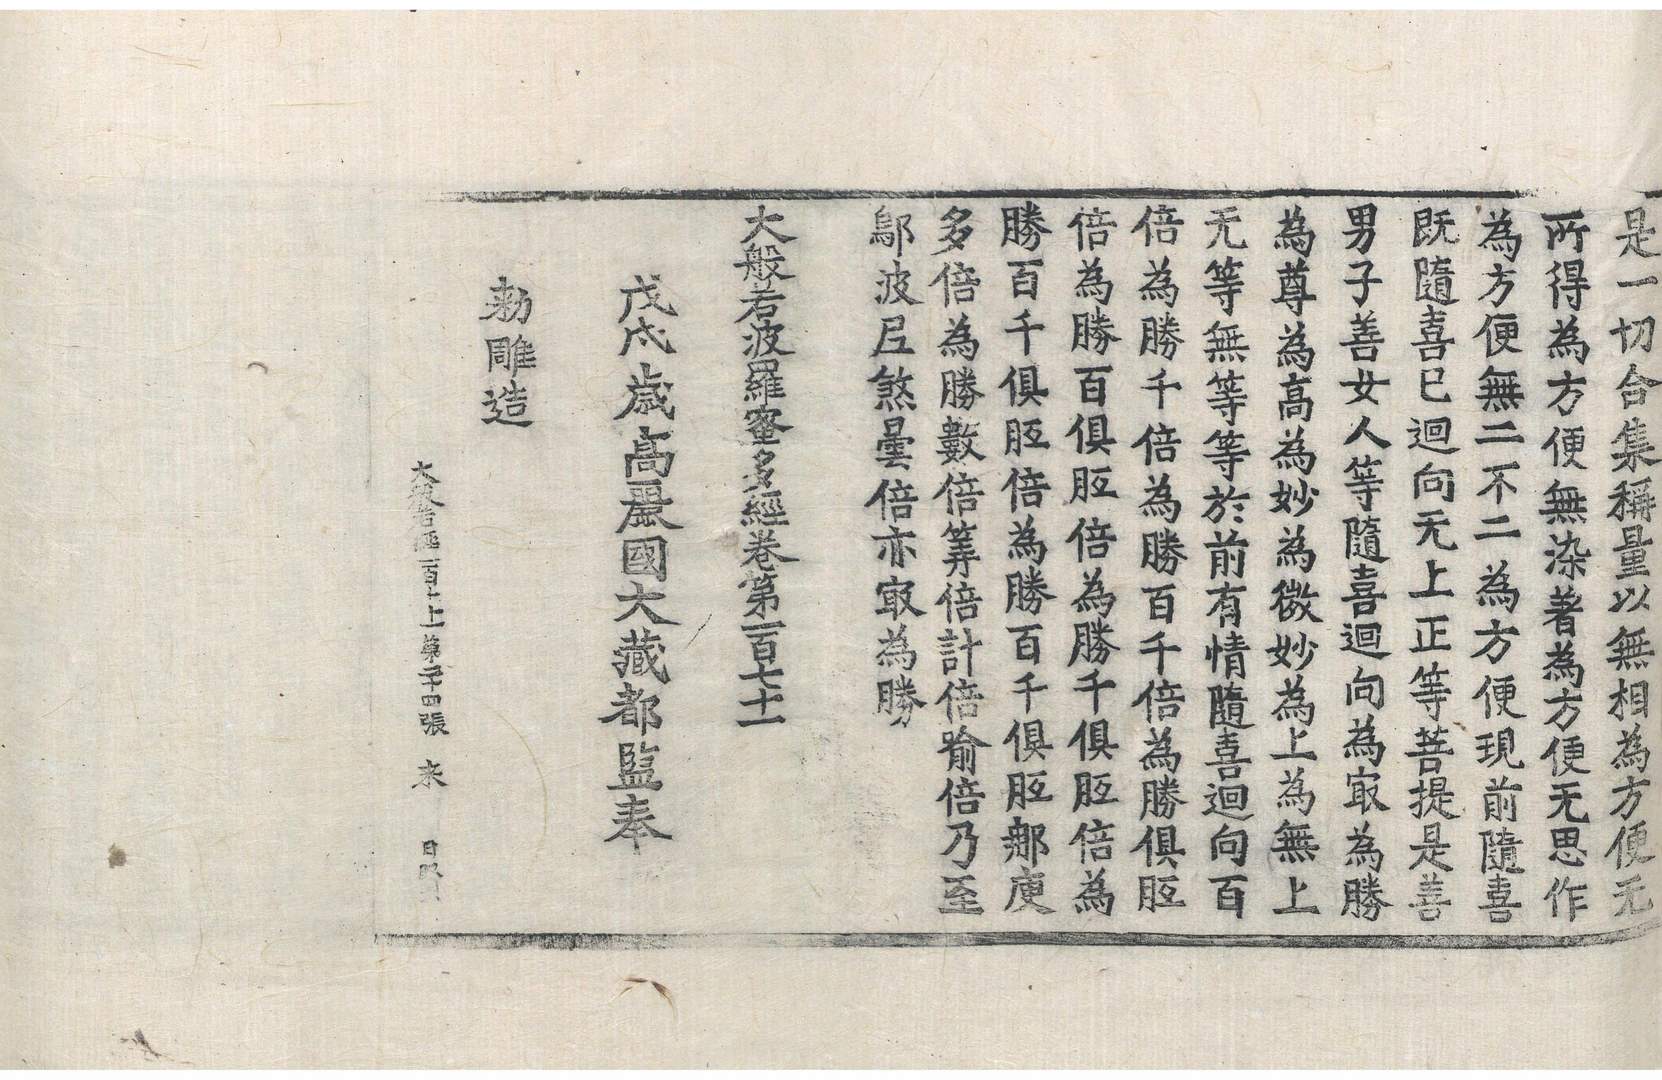 是一切合集稱量以無相為方便无
所得為方便無染著為方便无思作
為方便無二不二為方便現前隨喜
既隨喜已迴向无上正等菩提是善
男子善女人等隨喜迴向為㝡為勝
為尊為高為妙為微妙為上為無上
无等無等等於前有情隨喜迴向百
倍為勝千倍為勝百千倍為勝俱胝
倍為勝百俱胝倍為勝千俱胝倍為
勝百千俱胝倍為勝百千俱胝那庾
多倍為勝數倍筭倍計倍喻倍乃至
鄔波尼煞曇倍亦㝡為勝
大般若波羅蜜多經卷第一百七十一
戊戌歲高麗國大藏都監奉
勑雕造
大般若經一百七十一 第二十四張 来